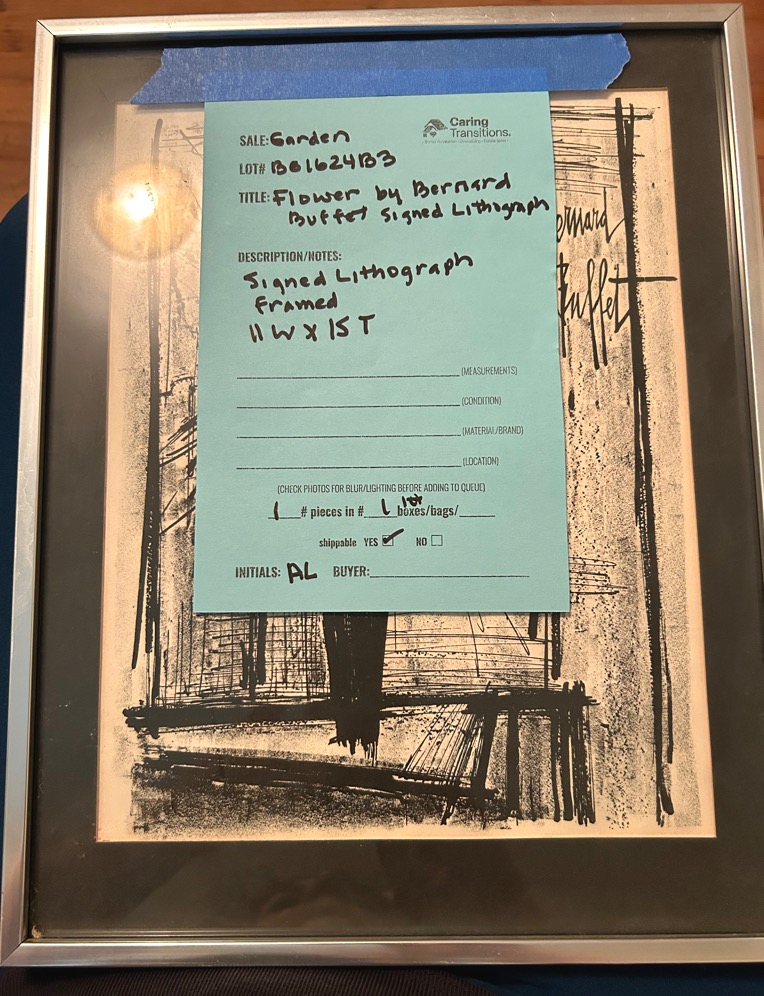 Caring
Transitions.
SALE: Garden
LOT# BG1624B3
TITLE: Flower by Bernard
Buffet Signed Lithograph
DESCRIPTION/NOTES:
Signed Lithograph
Framed
11 W X 15 T
(MEASUREMENTS)
(CONDITION)
(MATERIAL/BRAND)
(LOCATION)
(CHECK PHOTOS FOR BLUR/LIGHTING BEFORE ADDING TO QUEUE)
1 # pieces in # 1 lot boxes/bags/
shippable YES NO
INITIALS: AL BUYER:
ernard
uffet